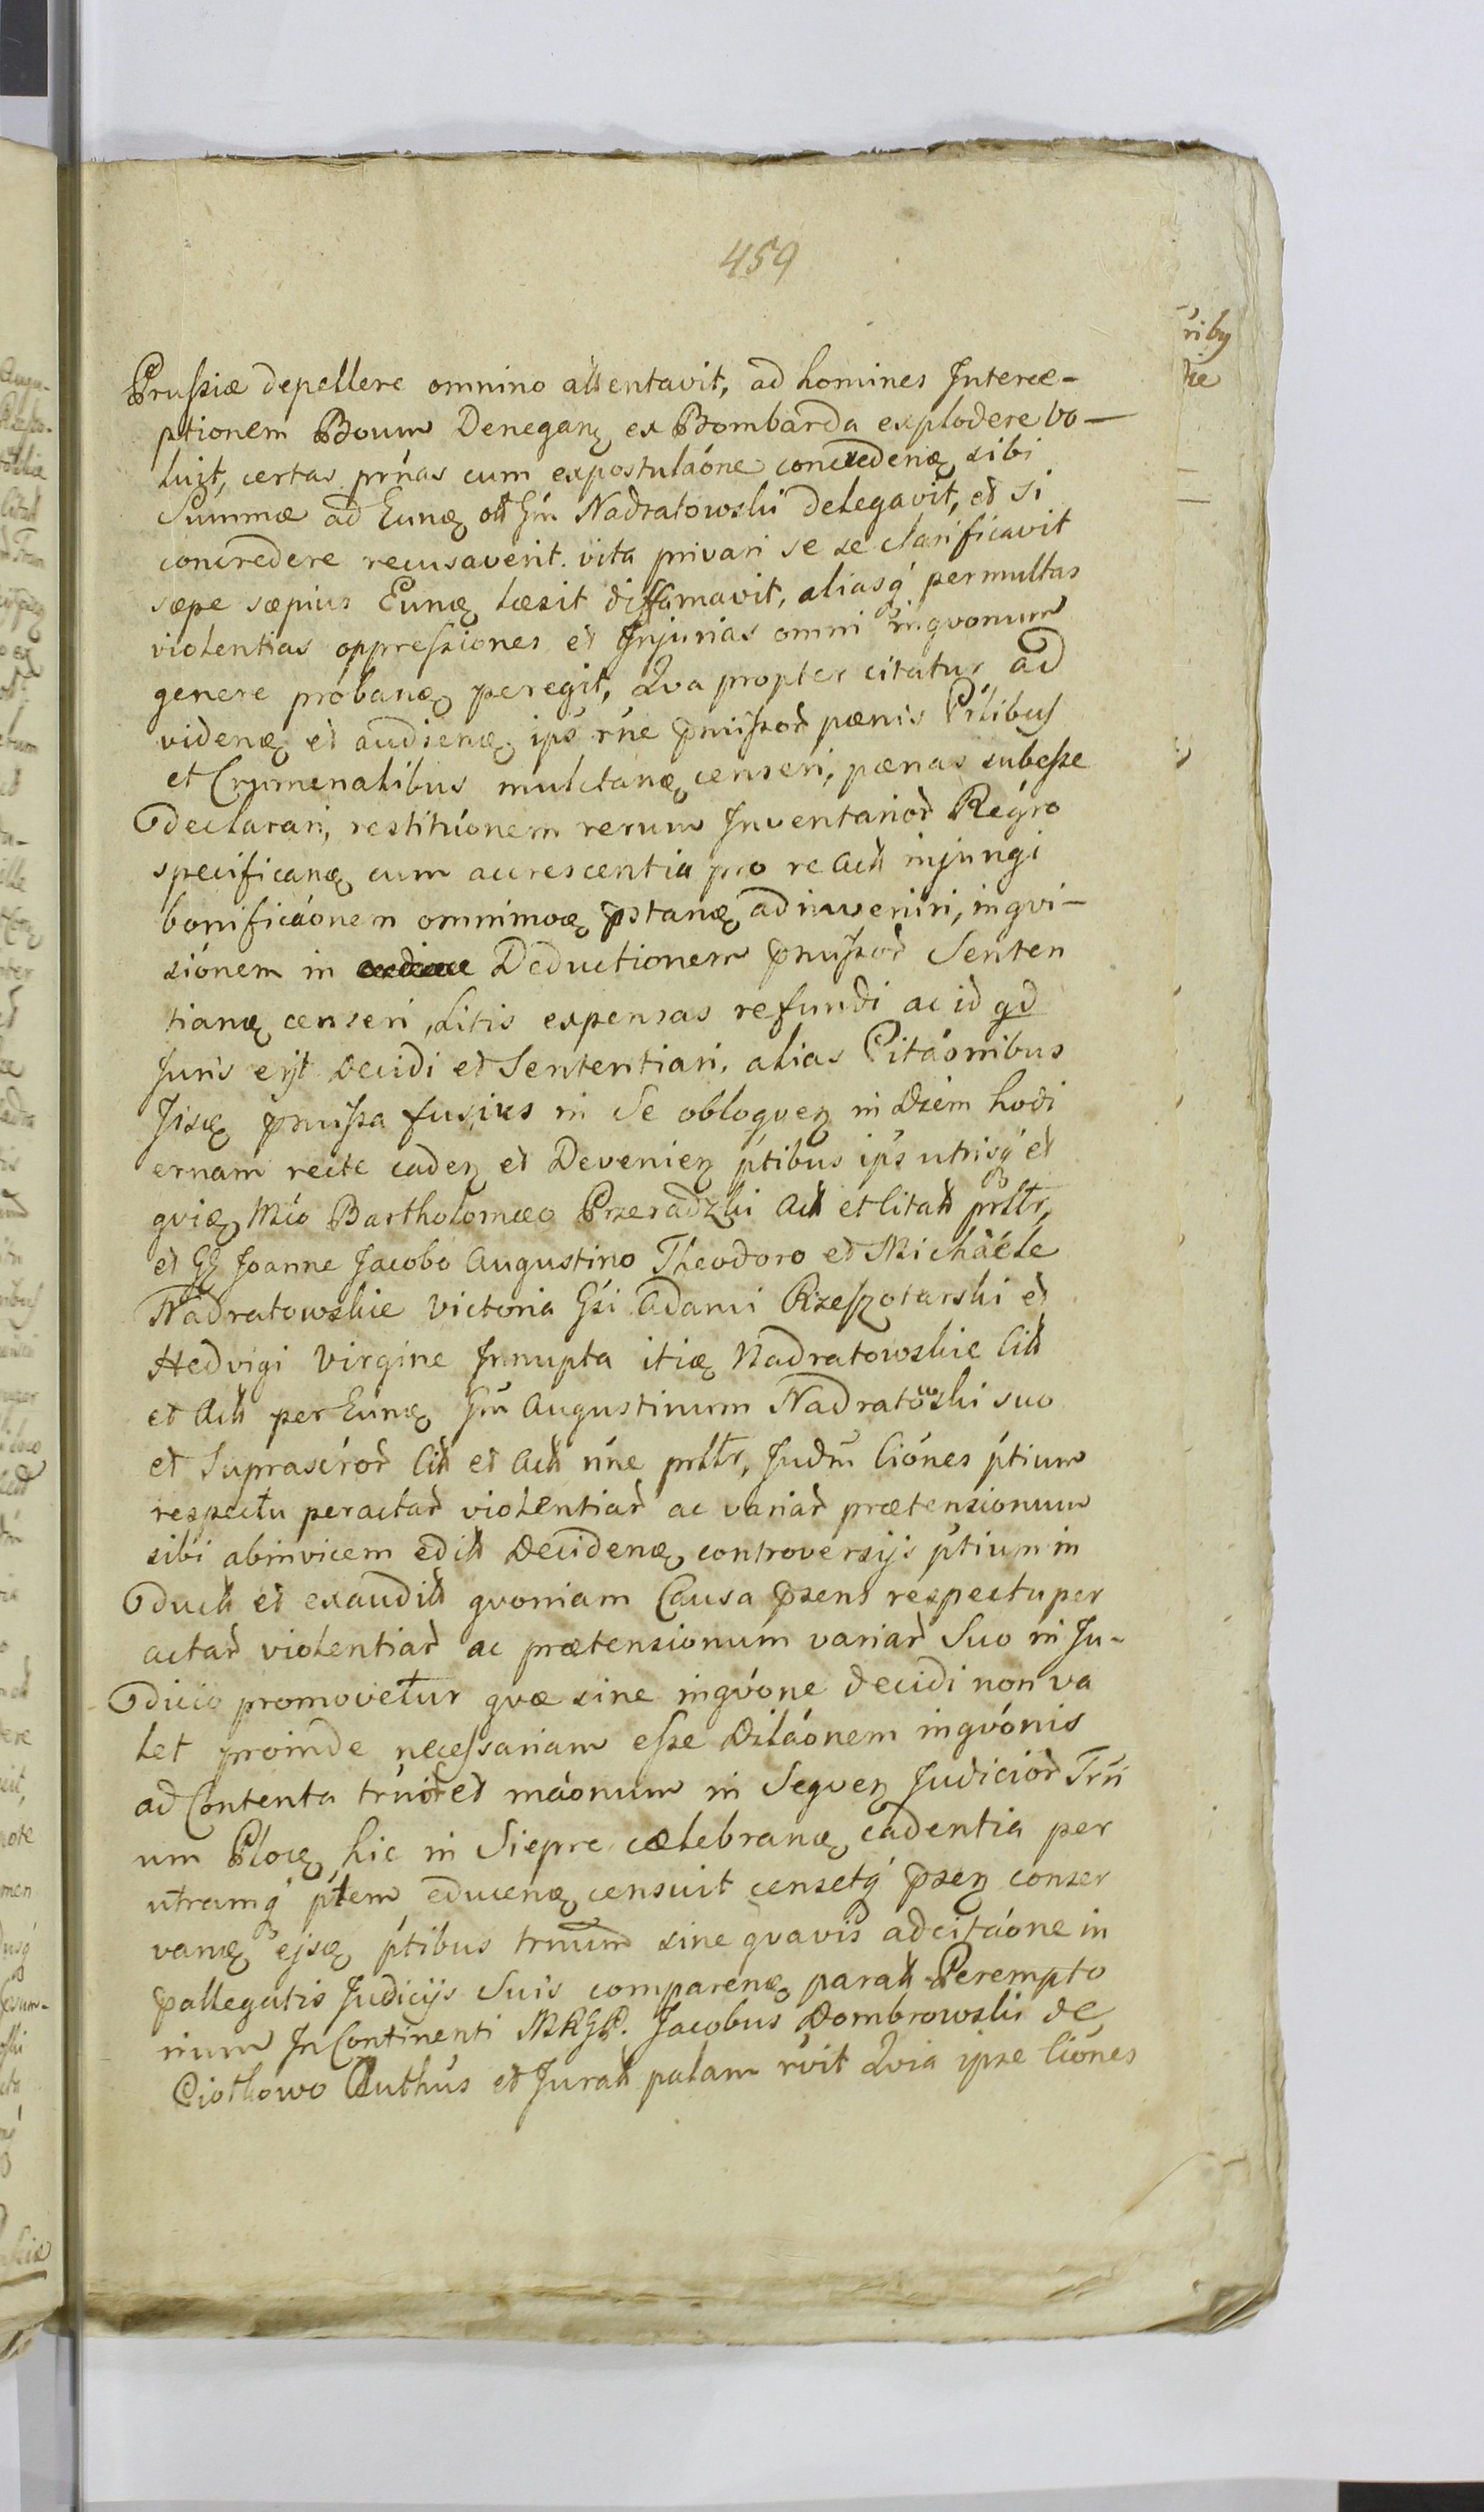 459
Prussiæ depellere omnino attentavit, ad homines Interce-
ptionem Boum Deneganȝ ex Bombarda explodere vo-
luit, certas prńas cum expostulaóne concredenæ sibi
Summæ ad Eunæ olt Gm Nadratowski delegavit, et si
concredere recusaverit vita privari se se clarificavit
sæpe sæpius Eunæ læsit diffamavit, aliasq́ permultas
violentias oppressiones et Injurias omni inqvonum
genere probanæ peregit, Qva propter citatur ad
videnæ et audienæ ips rńe pmissor pænis Cvlibus
et Crymenalibus mulctanæ censeri, pænas subesse
declarari, restitúonem rerum Inventarior Regro
specificanæ cum accrescentia pro re Actt injungi
bonificaónem omnimoæ pstanæ adinveniri, inqvi-
siónem in Deductionem pmissor Senten
tianæ censeri, Litis expensas refundi ac id qd
Juris erjt Decidi et Sententiari, alias Citaónibus
Jisæ pmissa fusius in Se obloqvenȝ in Diem hodi
ernam recte cadenȝ et Devenienȝ ptibus ips utrisq́ et
qviæ Mco Bartholomæo Przeradzki Actt et Citatt prlttr,
et GG Joanne Jacobo Augustino Theodoro et Michaéle
Nadratowskie Victoria Gsi Adami Rzeszotarski et
Hedvigi Virgine Innupta itiæ Nadratowskie Citt
et Actt per Eunæ Gm Augustinum Nadratowski suo
et Suprascror Citt et Actt nńe prlttr, Judm Ciónes ptium
respectu peractar violentiar ac variar prætensionum
sibi abinvicem editt Decidenæ controversijs ptium in
ductt et exauditt qvoniam Causa psens respectu per
actar violentiar ac prætensionum variar Suo in Ju-
dicio promovetur qvæ sine inqvóne decidi non va
let proinde necessariam esse Dilaónem inqvónis
ad Contenta trńior et maónum in Seqvenȝ Judicior Trń
um Plocæ hic in Sieprc cælebranæ cadentia per
utramq́ ptem educenæ censuit censetq́ psenȝ conser
vanæ ejsæ ptibus trnum sine qvavis adcitaóne in
pallegatis Judicijs Suis comparenæ paratt Perempto
rium In Continenti MRGP. Jacobus Dombrowski de
Ciołkowo Authús et Juratt palam rvit Qvia ipse Ciónes